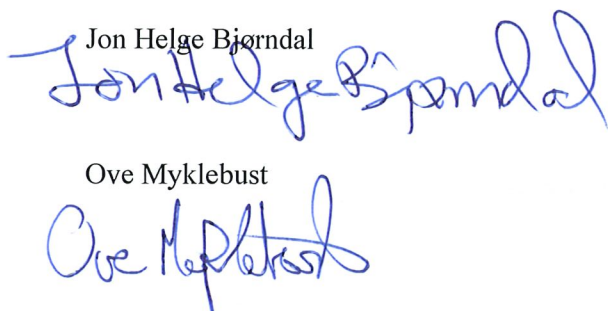 Jon Helge Bjørndal
Jon Helge Bjørndal
Ove Myklebust
Ove Myklebust